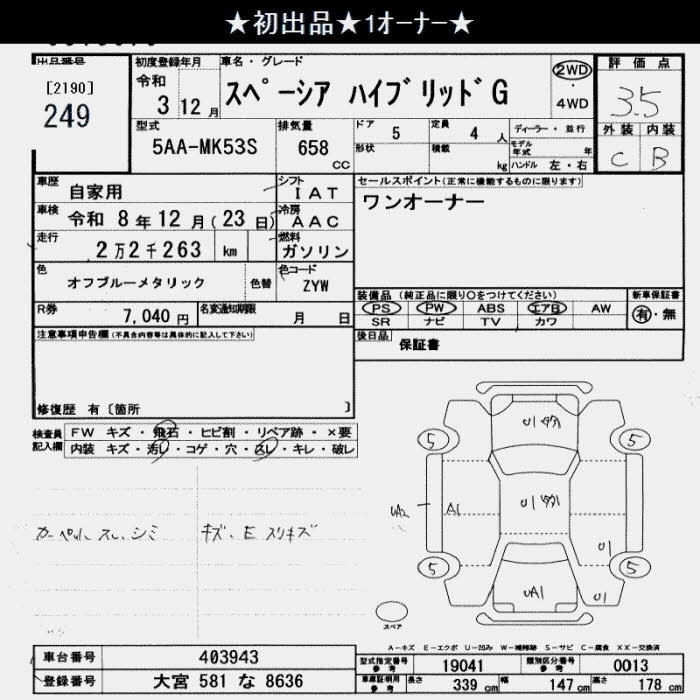 ★初出品★1オーナー★
出品番号
[2190]
249
初度登録年月
令和
3 12 月
車名・グレード
スペーシア ハイブリッドG
2WD
・
4WD
評価点
3.5
外装 内装
C B
型式
5AA-MK53S
排気量
658 cc
ドア
5
形状
定員
4 人
積載
kg
ディーラー・並行
モデル年式 年
ハンドル 左・右
車歴
自家用
シフト
IAT
車検
令和 8年12月(23日)
冷房
AAC
走行
2万2千263 km
燃料
ガソリン
色
オフブルーメタリック
色替
色コード
ZYW
R券
7,040 円
名変通知期限
月 日
セールスポイント(正常に機能するものに限ります)
ワンオーナー
装備品(純正品に限り○をつけてください)
PS PW ABS エアB AW
SR ナビ TV カワ
新車保証書
有・無
後日品
保証書
注意事項申告欄(不具合内容等は具体的に記入して下さい)
修復歴 有〔箇所 〕
検査員
記入欄
FW キズ・飛石・ヒビ割・リペア跡・×要
内装 キズ・汚レ・コゲ・穴・スレ・キレ・破レ
カーペット スレ、シミ
キズ、E スリキズ
5
5
5
5
UA2
A1
U1
U1
U1
U1
UA1
スペア
A-キズ E-エクボ U-凹み W-補修跡 S-サビ C-腐食 XX-交換済
車台番号
403943
登録番号
大宮 581 な 8636
型式指定番号
参考
19041
類別区分番号
参考
0013
車庫証明用
参考
長さ 339 cm
幅 147 cm
高さ 178 cm